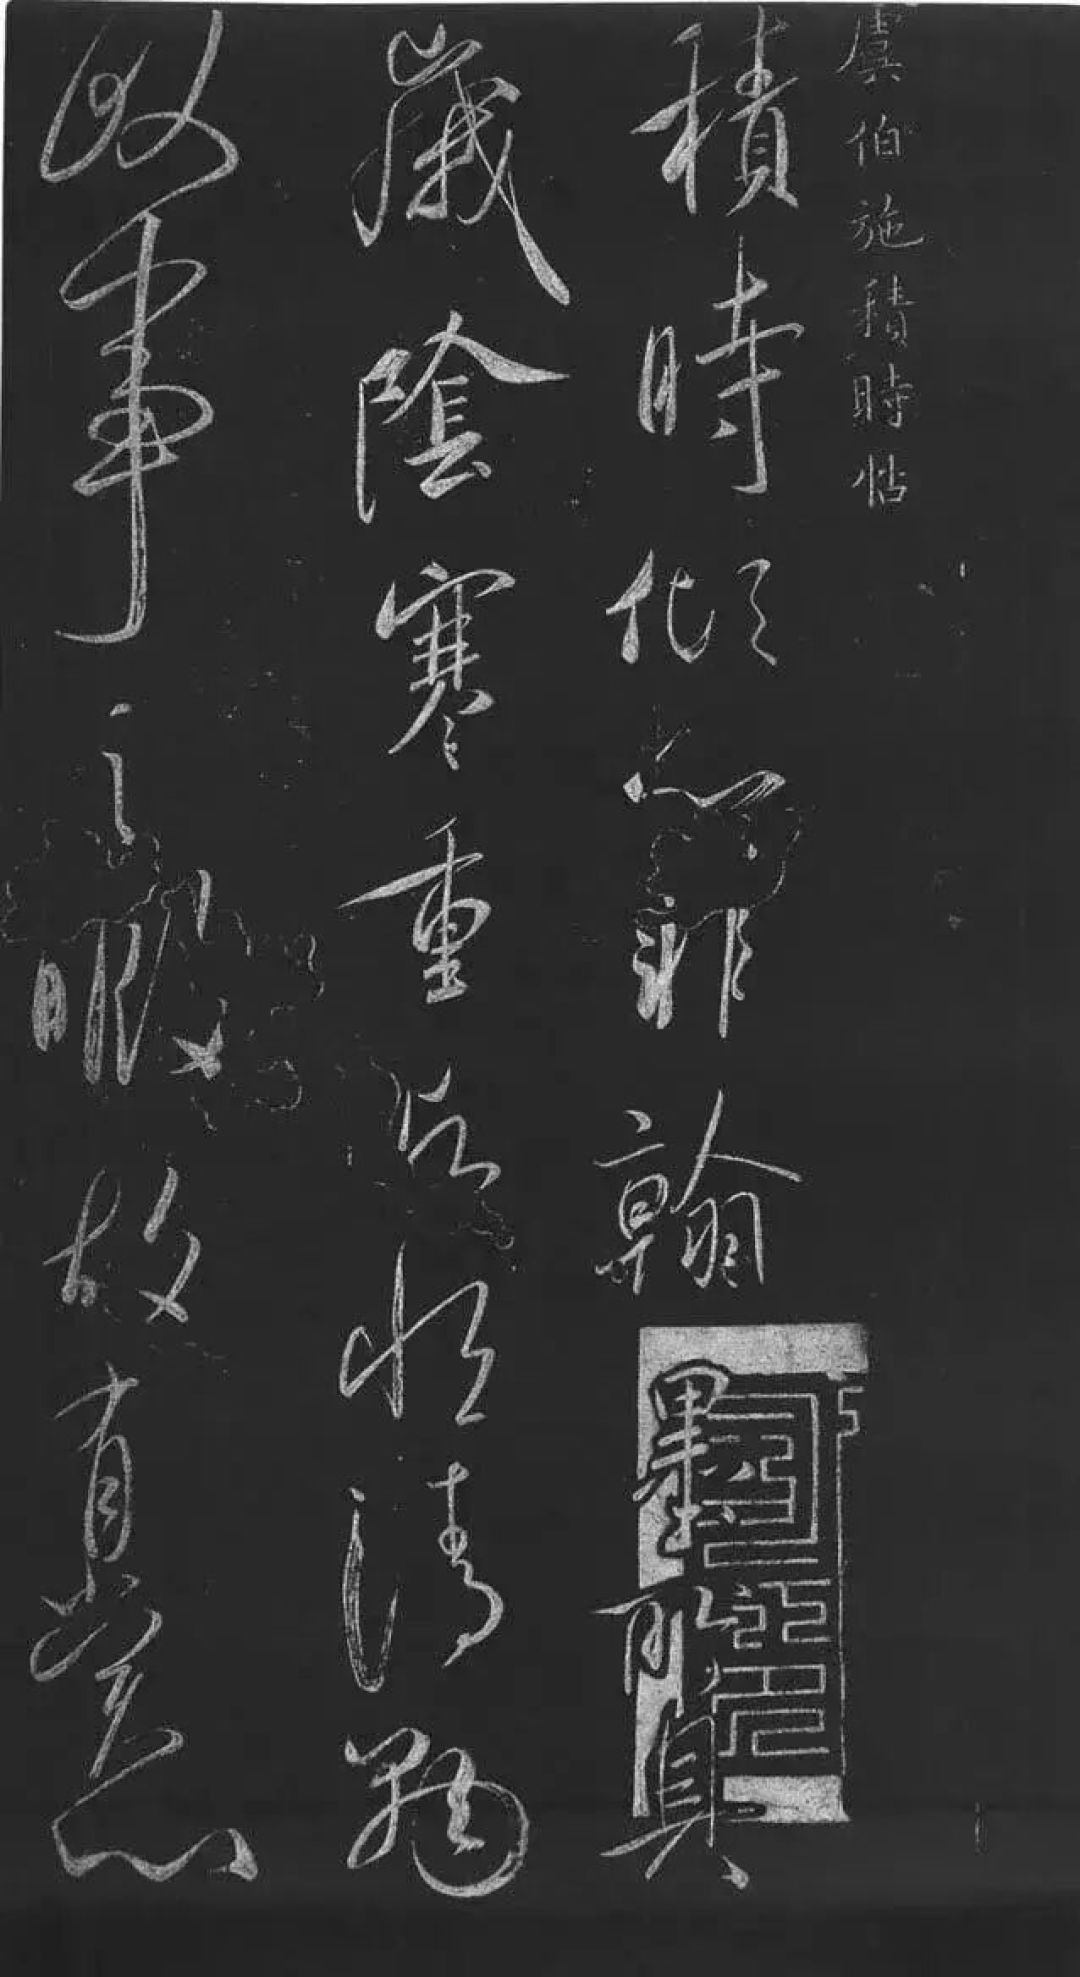 虞伯施積時帖
積時傾心非翰墨所具
歲陰寒重公懷清
政事之暇故有賞心